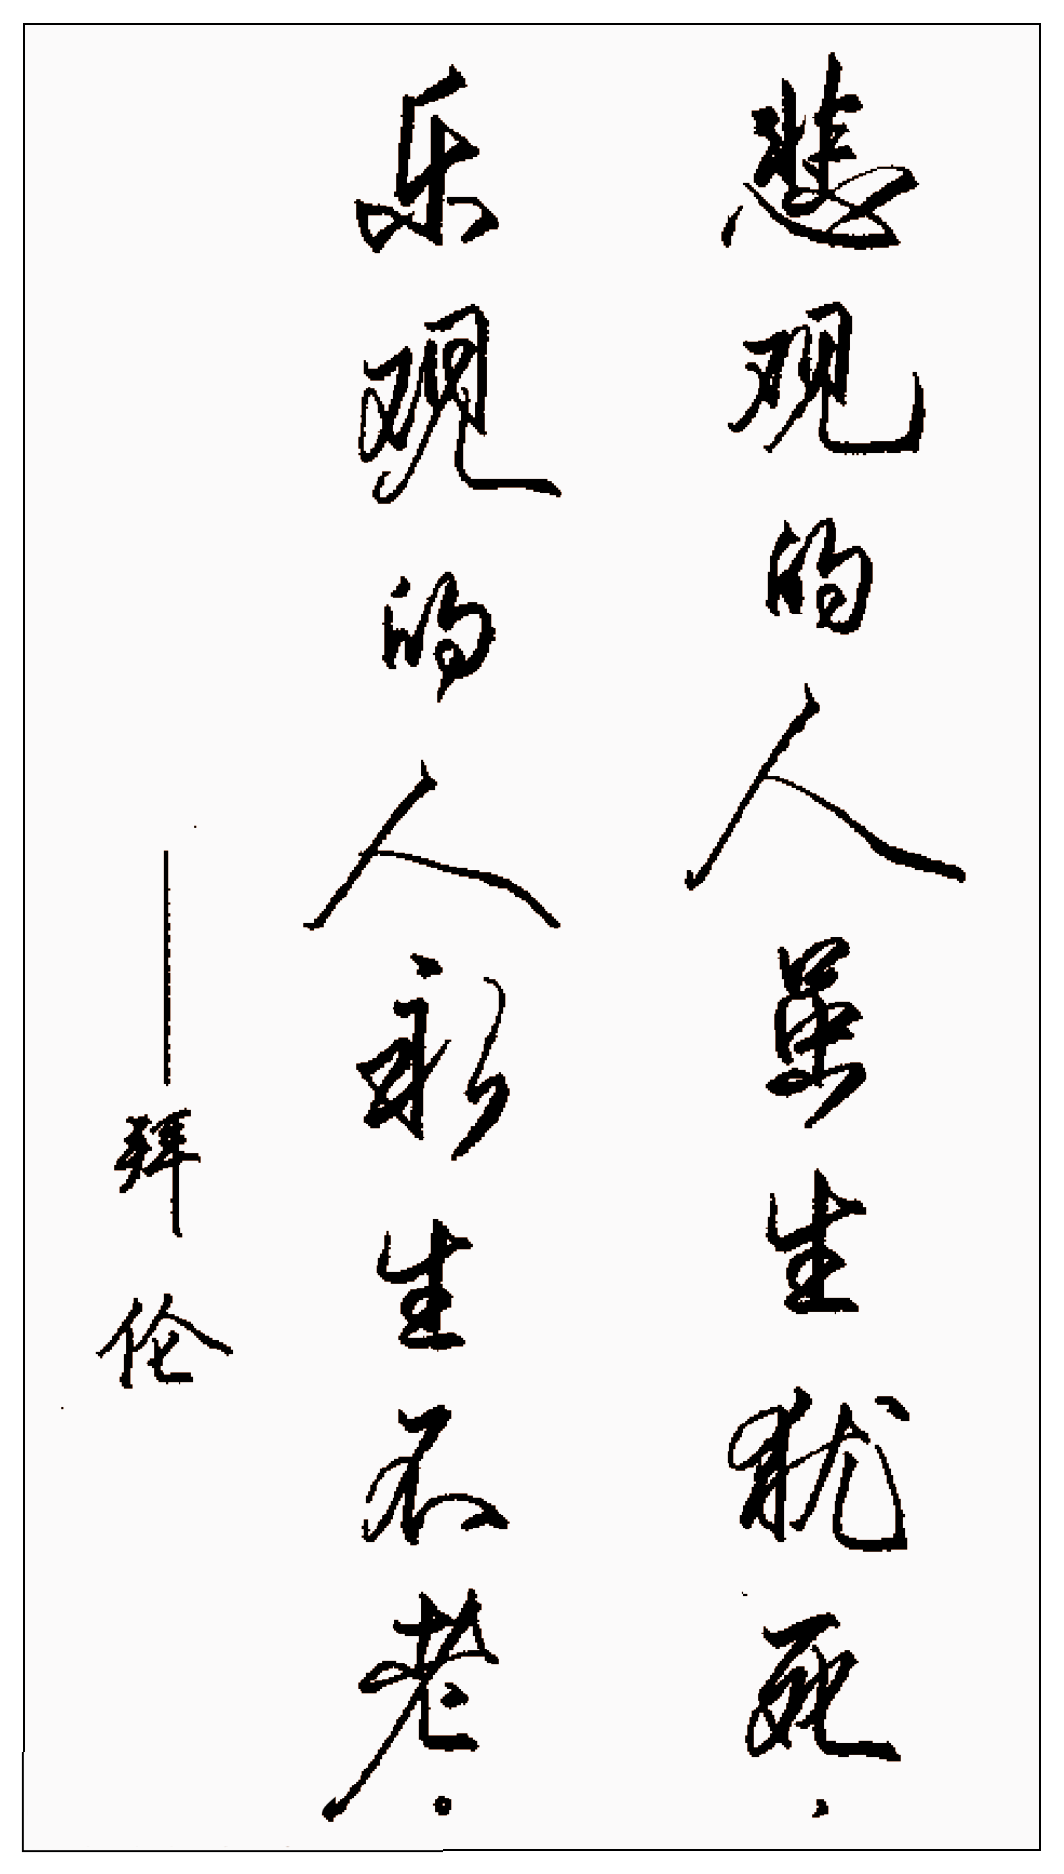 悲观的人虽生犹死，
乐观的人永生不老。
——拜伦